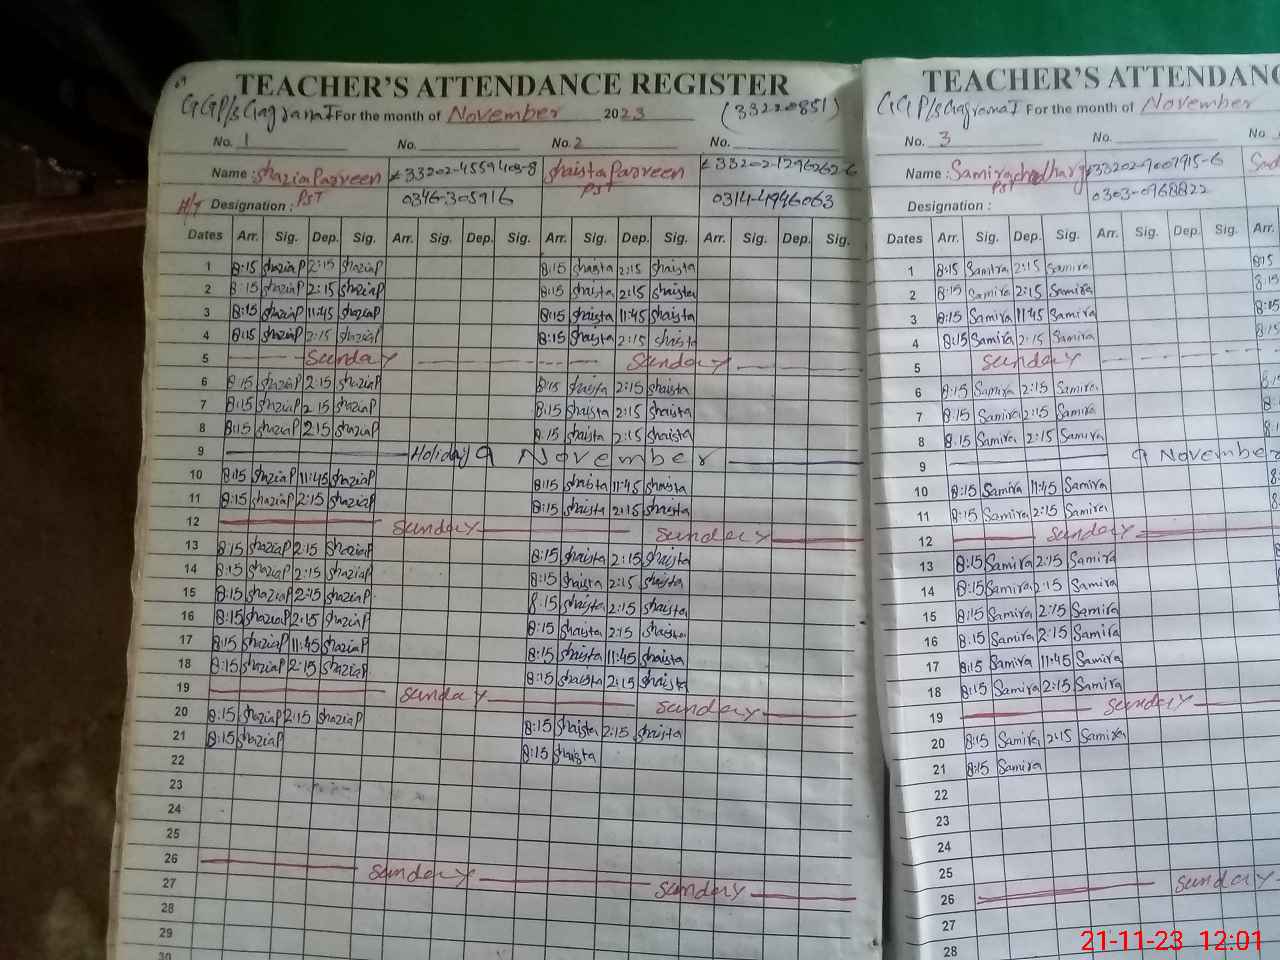 TEACHER'S ATTENDANCE REGISTER
For the month of November 2023 (33220851)
No. 1 No. No. 2 No.
Name : Shazia Parveen Shaista Parveen
H/T Designation : PST PST
0346-305916
Dates Arr. Sig. Dep. Sig. Arr. Sig. Dep. Sig. Arr. Sig. Dep. Sig. Arr. Sig. Dep. Sig.
1 8:15 ShaziaP 2:15 ShaziaP 8:15 Shaista 2:15 Shaista
2 8:15 ShaziaP 2:15 ShaziaP 8:15 Shaista 2:15 Shaista
3 8:15 ShaziaP 11:45 ShaziaP 8:15 Shaista 11:45 Shaista
4 8:15 ShaziaP 2:15 ShaziaP 8:15 Shaista 2:15 Shaista
5 Sunday Sunday
6 8:15 ShaziaP 2:15 ShaziaP 8:15 Shaista 2:15 Shaista
7 8:15 ShaziaP 2:15 ShaziaP 8:15 Shaista 2:15 Shaista
8 8:15 ShaziaP 2:15 ShaziaP 8:15 Shaista 2:15 Shaista
9 Holiday 9 November
10 8:15 ShaziaP 11:45 ShaziaP 8:15 Shaista 11:45 Shaista
11 8:15 ShaziaP 2:15 ShaziaP 8:15 Shaista 2:15 Shaista
12 Sunday Sunday
13 8:15 ShaziaP 2:15 ShaziaP 8:15 Shaista 2:15 Shaista
14 8:15 ShaziaP 2:15 ShaziaP 8:15 Shaista 2:15 Shaista
15 8:15 ShaziaP 2:15 ShaziaP 8:15 Shaista 2:15 Shaista
16 8:15 ShaziaP 2:15 ShaziaP 8:15 Shaista 2:15 Shaista
17 8:15 ShaziaP 11:45 ShaziaP 8:15 Shaista 11:45 Shaista
18 8:15 ShaziaP 2:15 ShaziaP 8:15 Shaista 2:15 Shaista
19 Sunday Sunday
20 8:15 ShaziaP 2:15 ShaziaP 8:15 Shaista 2:15 Shaista
21 8:15 ShaziaP 8:15 Shaista
22
23
24
25
26 Sunday Sunday
27
28
29
30
TEACHER'S ATTENDANC
For the month of November
No. 3 No.
Name : Samira
Designation : PST 0303-0968822
Dates Arr. Sig. Dep. Sig. Arr. Sig. Dep. Sig. Arr.
1 8:15 Samira 2:15 Samira 8:15
2 8:15 Samira 2:15 Samira 8:15
3 8:15 Samira 11:45 Samira 8:15
4 8:15 Samira 2:15 Samira
5 Sunday
6 8:15 Samira 2:15 Samira
7 8:15 Samira 2:15 Samira
8 8:15 Samira 2:15 Samira
9 9 November
10 8:15 Samira 11:45 Samira
11 8:15 Samira 2:15 Samira
12 Sunday
13 8:15 Samira 2:15 Samira
14 8:15 Samira 2:15 Samira
15 8:15 Samira 2:15 Samira
16 8:15 Samira 2:15 Samira
17 8:15 Samira 11:45 Samira
18 8:15 Samira 2:15 Samira
19 Sunday
20 8:15 Samira 2:15 Samira
21 8:15 Samira
22
23
24
25
26 Sunday
27
28
21-11-23 12:01